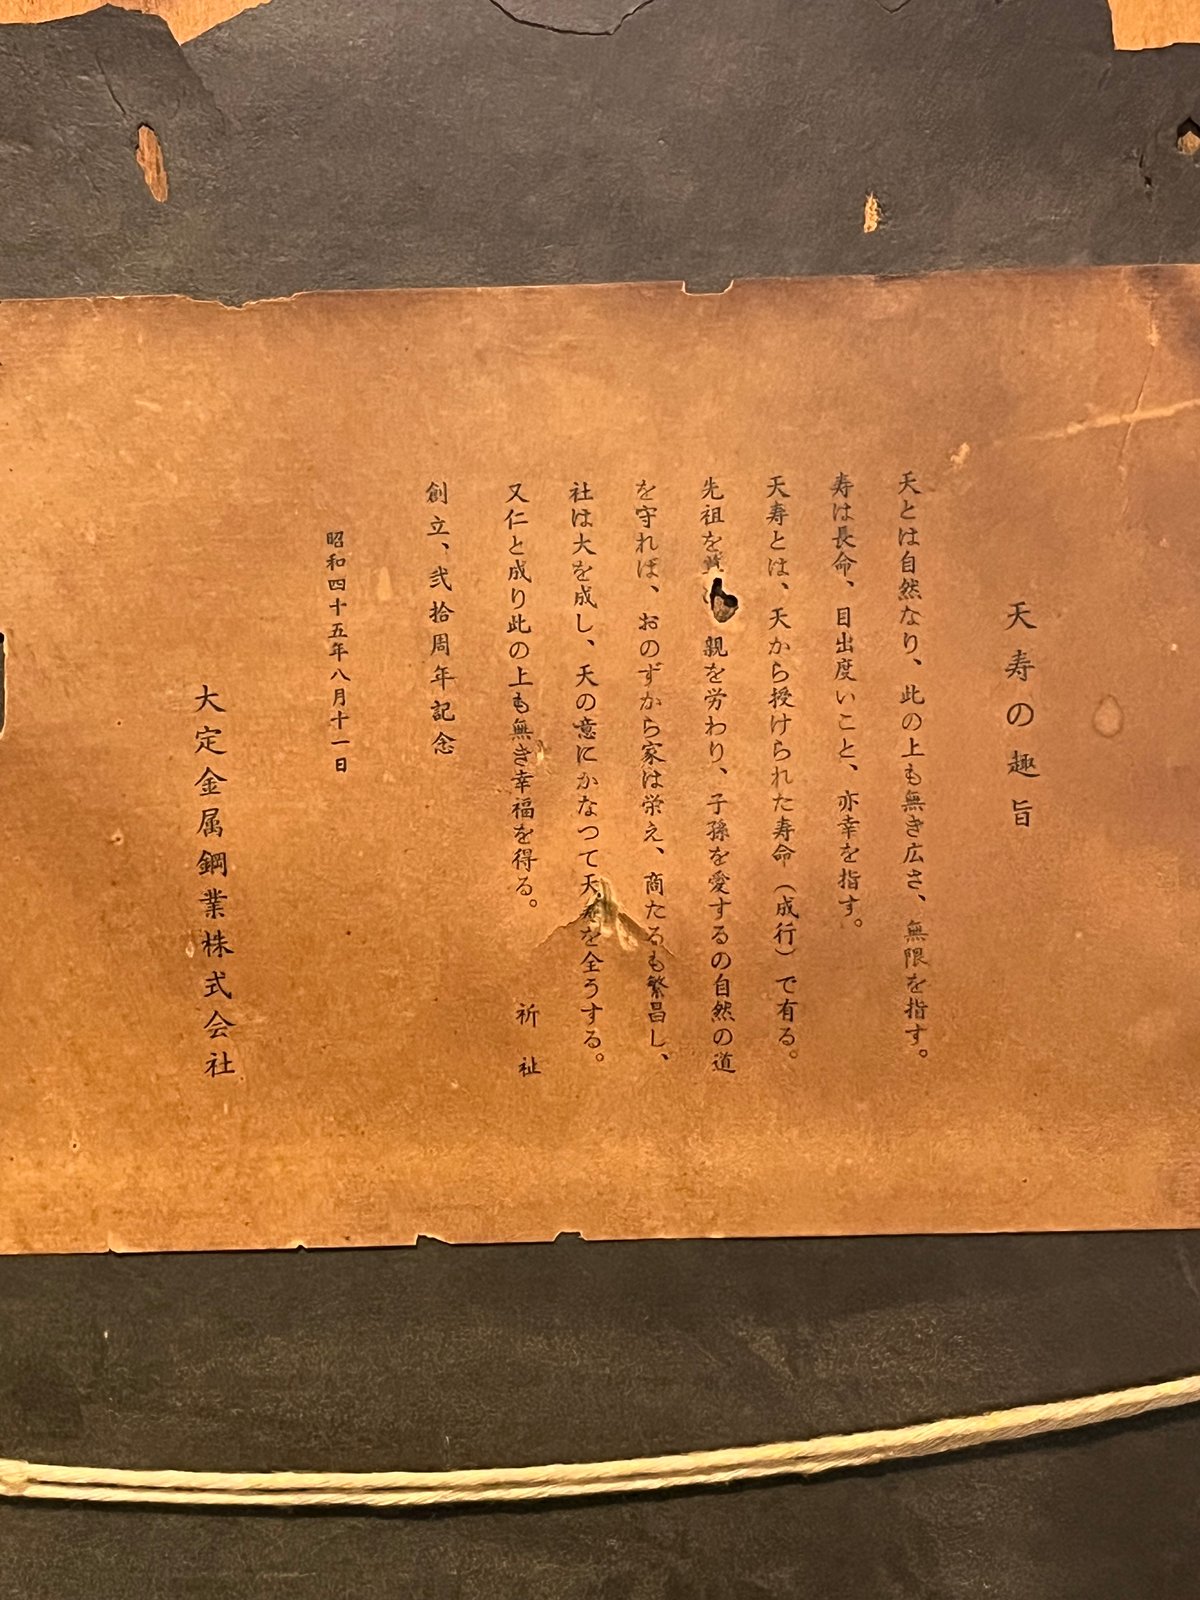 天寿の趣旨
天とは自然なり、此の上も無き広さ、無限を指す。
寿は長命、目出度いこと、亦幸を指す。
天寿とは、天から授けられた寿命（成行）で有る。
先祖を 親を労わり、子孫を愛するの自然の道
を守れば、おのずから家は栄え、商たるも繁昌し、
社は大を成し、天の意にかなつて天寿を全うする。
又仁と成り此の上も無き幸福を得る。
祈祉
創立、弐拾周年記念
昭和四十五年八月十一日
大定金属鋼業株式会社